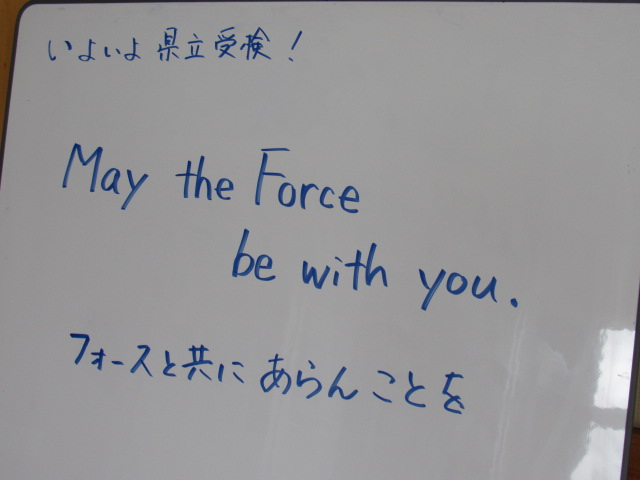 いよいよ県立受検!
May the Force
be with you.
フォースと共にあらんことを